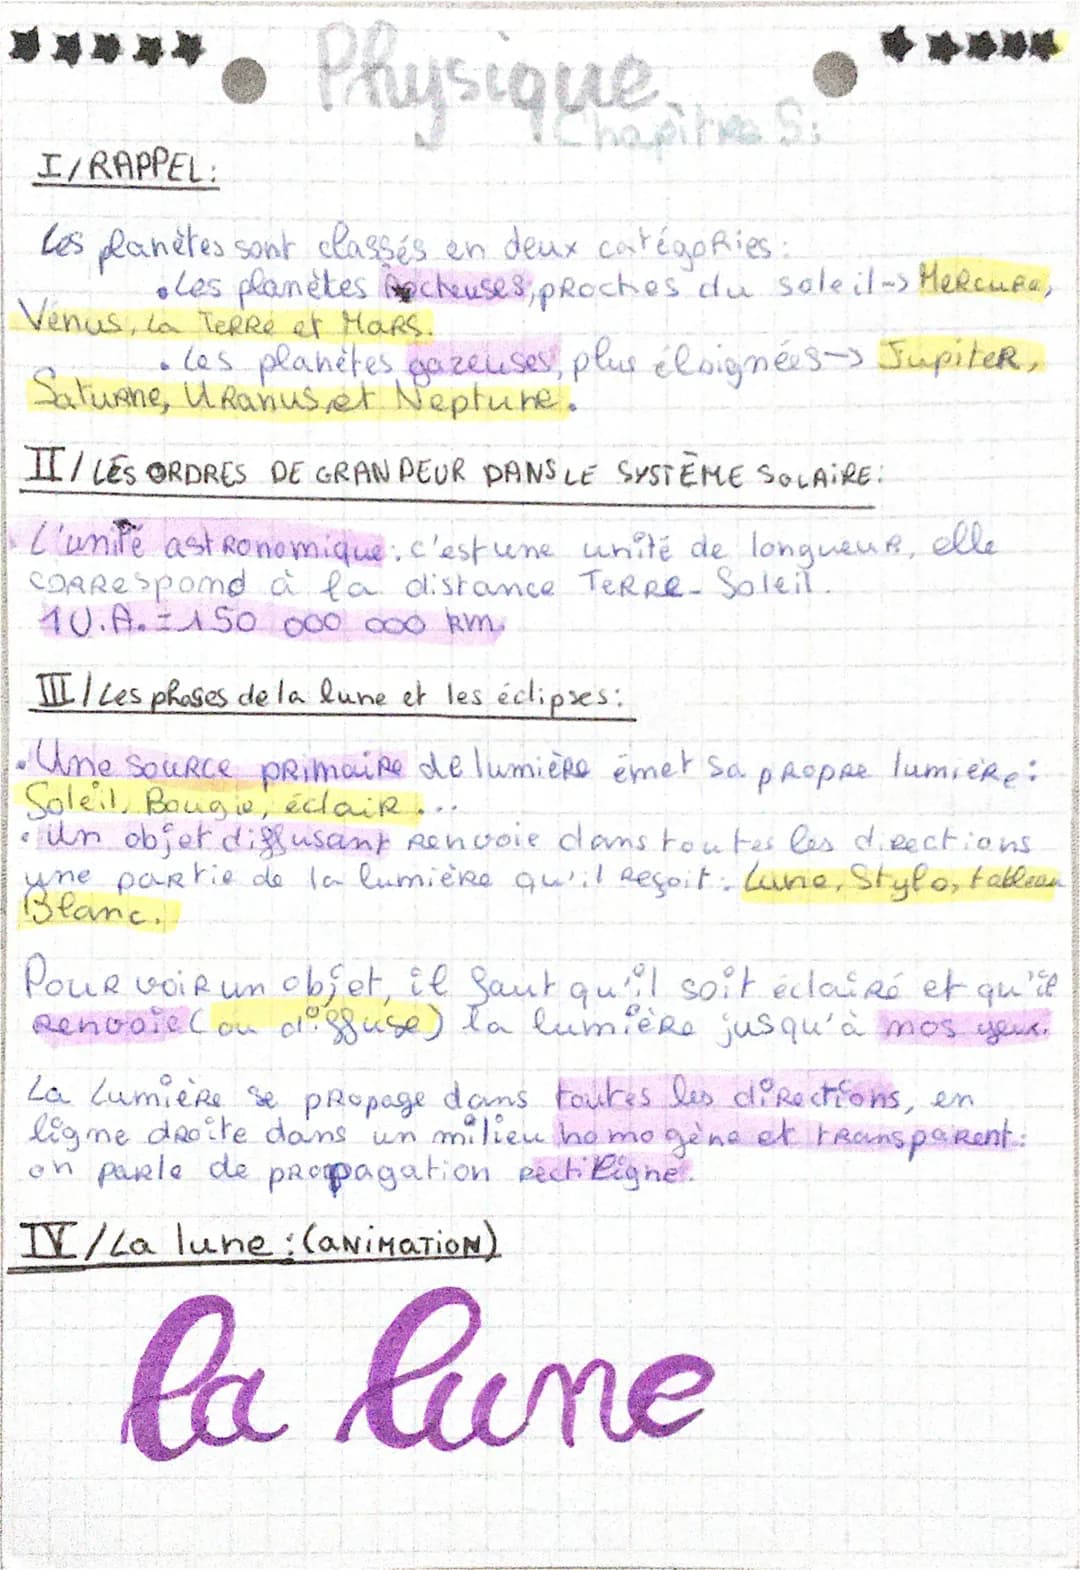 Physique
Chapitre 5:
I/RAPPEL:
Les planètes sont classés en deux catégories:
•Les planètes Rocheuses, proches du soleil-> Mercure,
Vénus, La Terre et Mars.
•Les planètes gazeuses, plus éloignées-> Jupiter,
Saturne, Uranus, et Neptune.
II/LES ORDRES DE GRANDEUR DANS LE SYSTÈME SOLAIRE:
L'unité astronomique: c'est une unité de longueur, elle
correspond à la distance Terre-Soleil.
1U.A.=150 000 000 km.
III/Les phases de la lune et les éclipses:
•Une source primaire de lumière émet sa propre lumière:
Soleil, Bougie, éclair...
•Un objet diffusant renvoie dans toutes les directions
une partie de la lumière qu'il reçoit: Lune, Stylo, tableau
Blanc.
Pour voir un objet, il faut qu'il soit éclairé et qu'il
renvoie (ou diffuse) la lumière jusqu'à nos yeux.
La lumière se propage dans toutes les directions, en
ligne droite dans un milieu homogène et transparent:
on parle de propagation rectiligne.
IV/La lune: (ANIMATION)
la lune